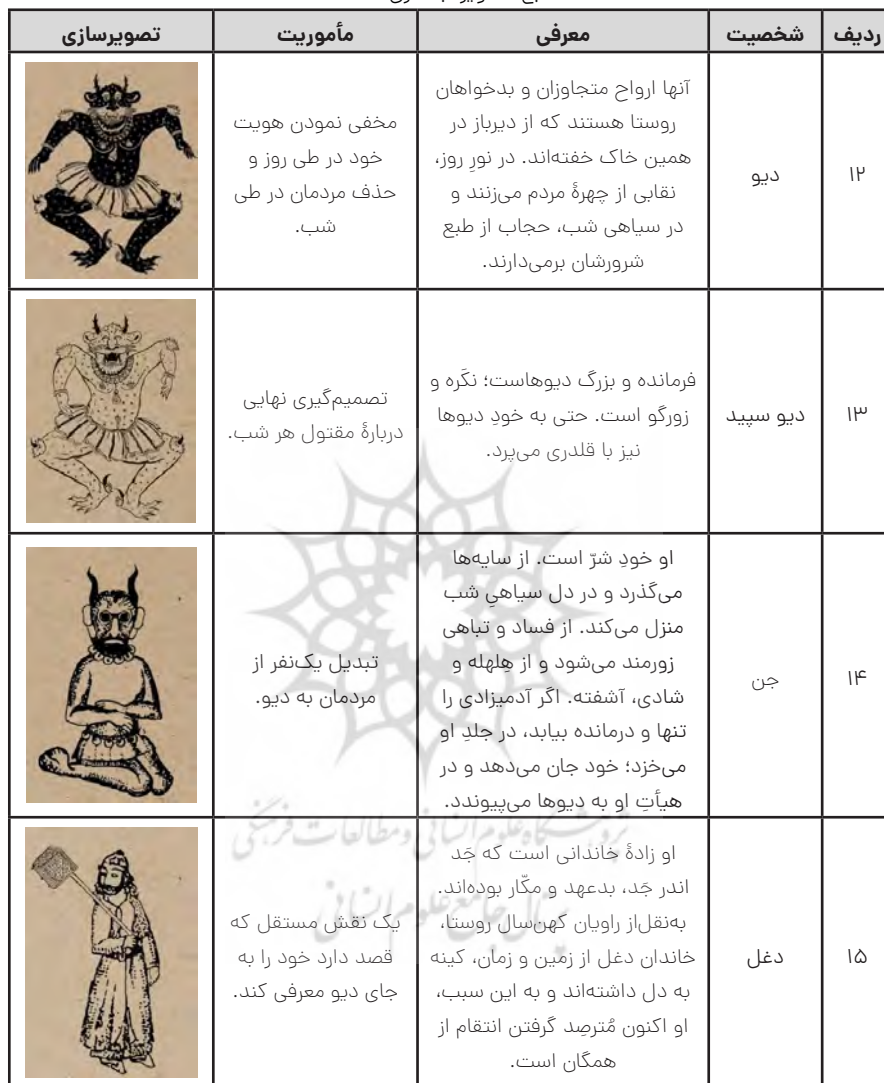 ردیف
شخصیت
معرفی
مأموریت
تصویرسازی
۱۲
دیو
آنها ارواح متجاوزان و بدخواهان
روستا هستند که از دیرباز در
همین خاک خفته‌اند. در نورِ روز،
نقابی از چهرهٔ مردم می‌زنند و
در سیاهی شب، حجاب از طبع
شرورشان برمی‌دارند.
مخفی نمودن هویت
خود در طی روز و
حذف مردمان در طی
شب.
۱۳
دیو سپید
فرمانده و بزرگ دیوهاست؛ نکَره و
زورگو است. حتی به خودِ دیوها
نیز با قلدری می‌پرد.
تصمیم‌گیری نهایی
دربارهٔ مقتول هر شب.
۱۴
جن
او خودِ شرّ است. از سایه‌ها
می‌گذرد و در دل سیاهیِ شب
منزل می‌کند. از فساد و تباهی
زورمند می‌شود و از هِلهله و
شادی، آشفته. اگر آدمیزادی را
تنها و درمانده بیابد، در جلدِ او
می‌خزد؛ خود جان می‌دهد و در
هیأتِ او به دیوها می‌پیوندد.
تبدیل یک‌نفر از
مردمان به دیو.
پژوهشگاه علوم انسانی و مطالعات فرهنگی
پرتال جامع علوم انسانی
۱۵
دغل
او زادهٔ خاندانی است که جَد
اندر جَد، بدعهد و مکّار بوده‌اند.
به‌نقل‌از راویان کهن‌سال روستا،
خاندان دغل از زمین و زمان، کینه
به دل داشته‌اند و به این سبب،
او اکنون مُترصِد گرفتن انتقام از
همگان است.
یک نقش مستقل که
قصد دارد خود را به
جای دیو معرفی کند.